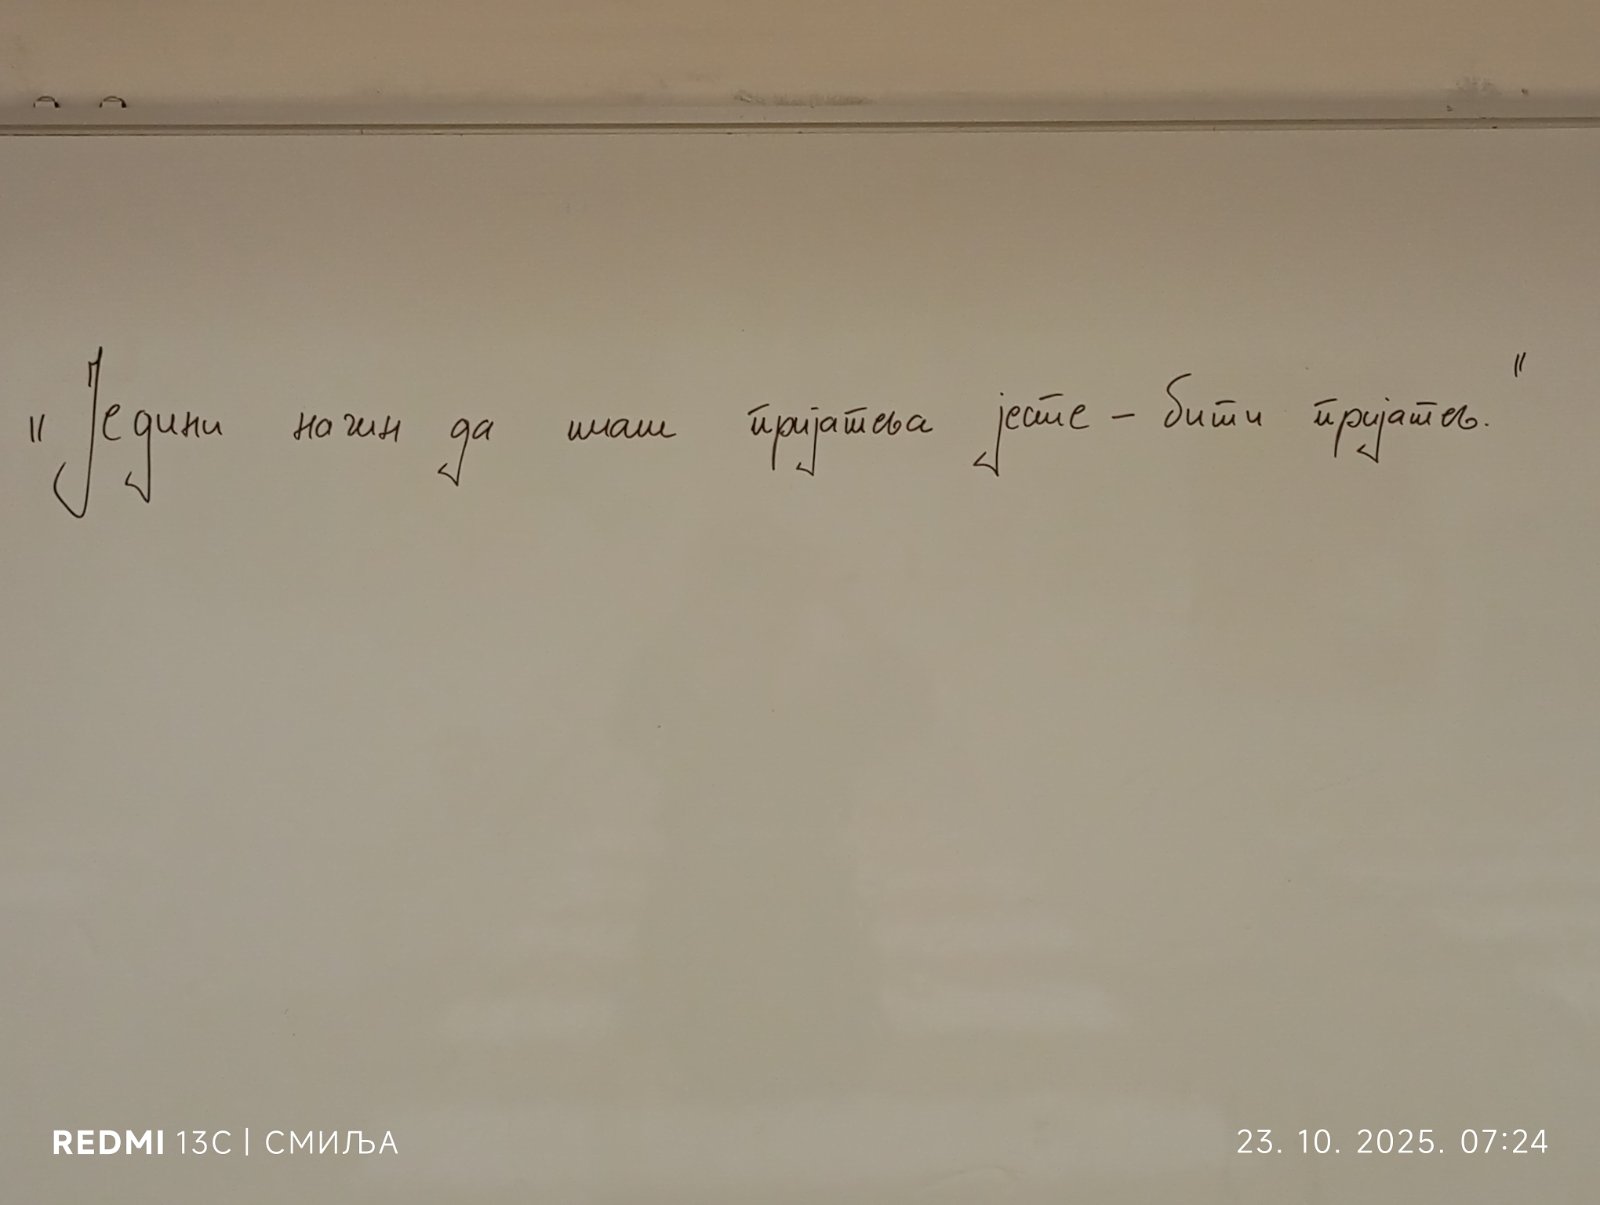 "Једини начин да имаш пријатеља јесте – бити пријатељ."
REDMI 13C | СМИЉА
23. 10. 2025. 07:24